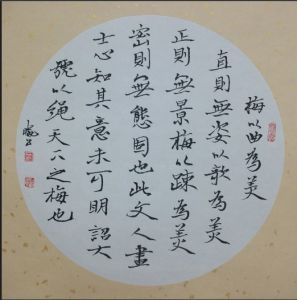 梅以曲為美
直則無姿以欹為美
正則無景梅以疎為美
密則無態固也此文人畫
士心知其意未可明詔大
號以绳天下之梅也